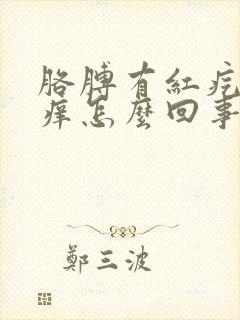 胳膊有紅疙
癢怎麼回事
鄭三波